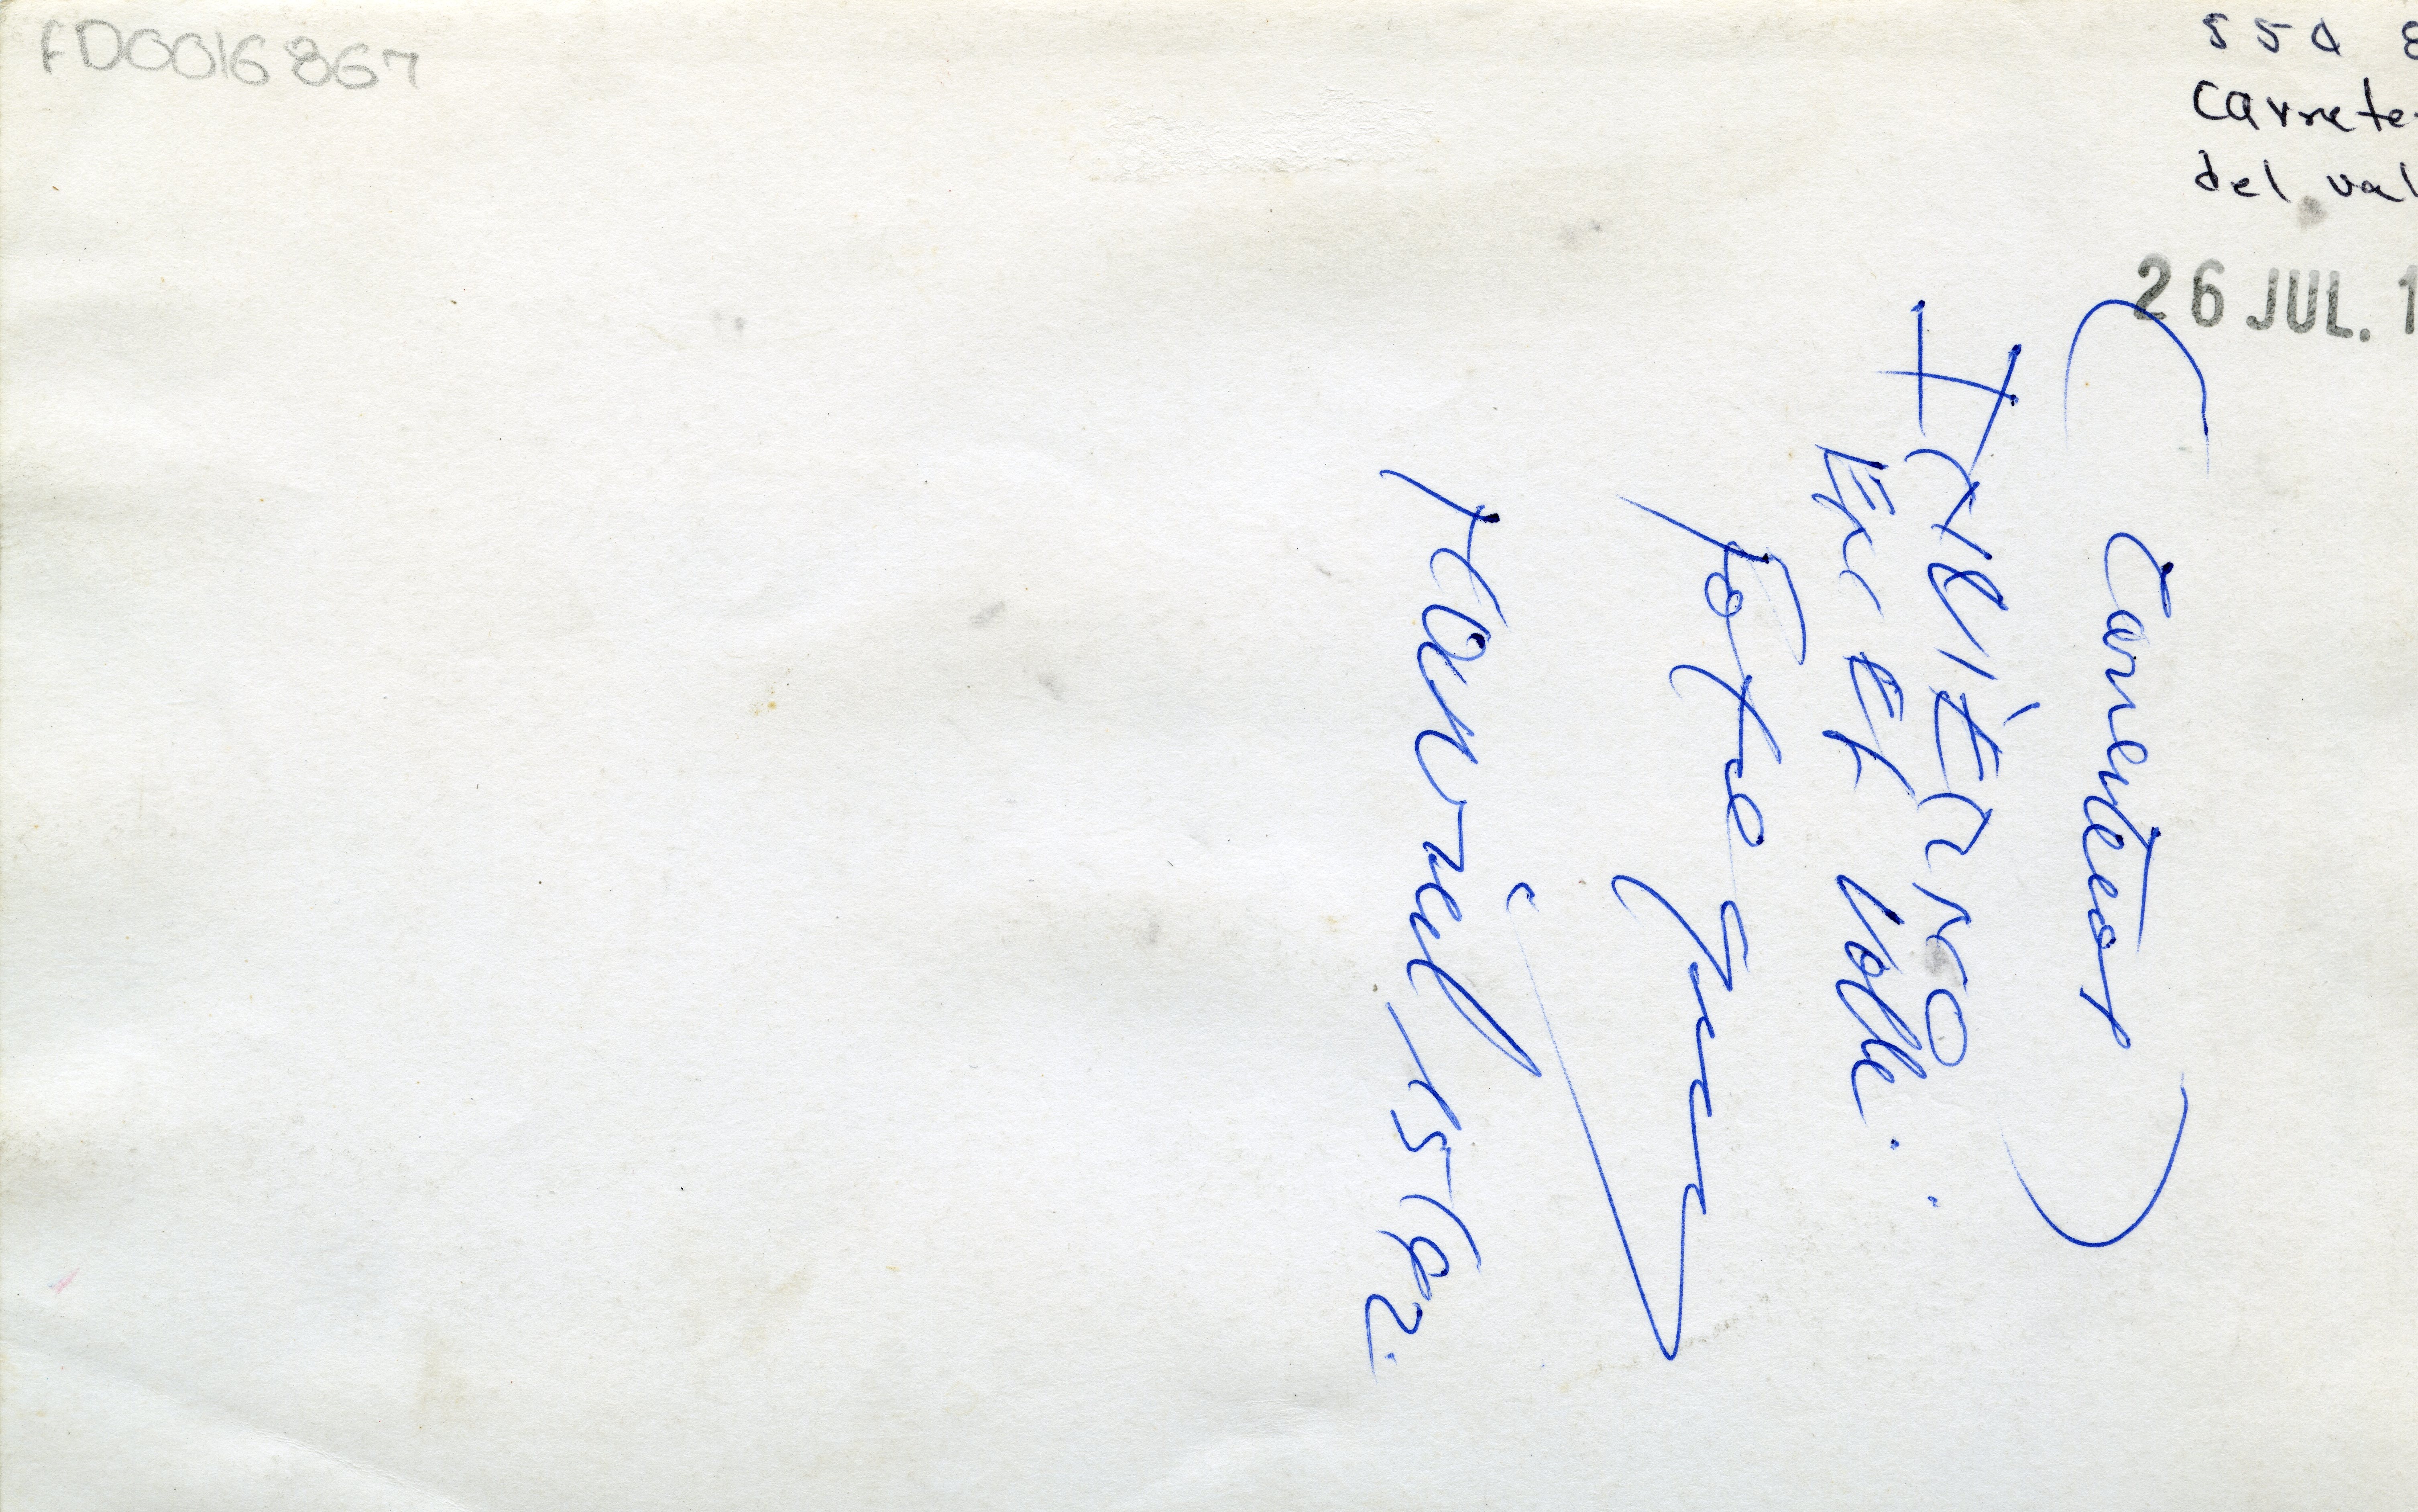 FD0016867
550 8
Carrete
del val
26 JUL. 1
(Carreteras)
INVIERNO
EN EL Valle.
Foto
Abril 15/82.